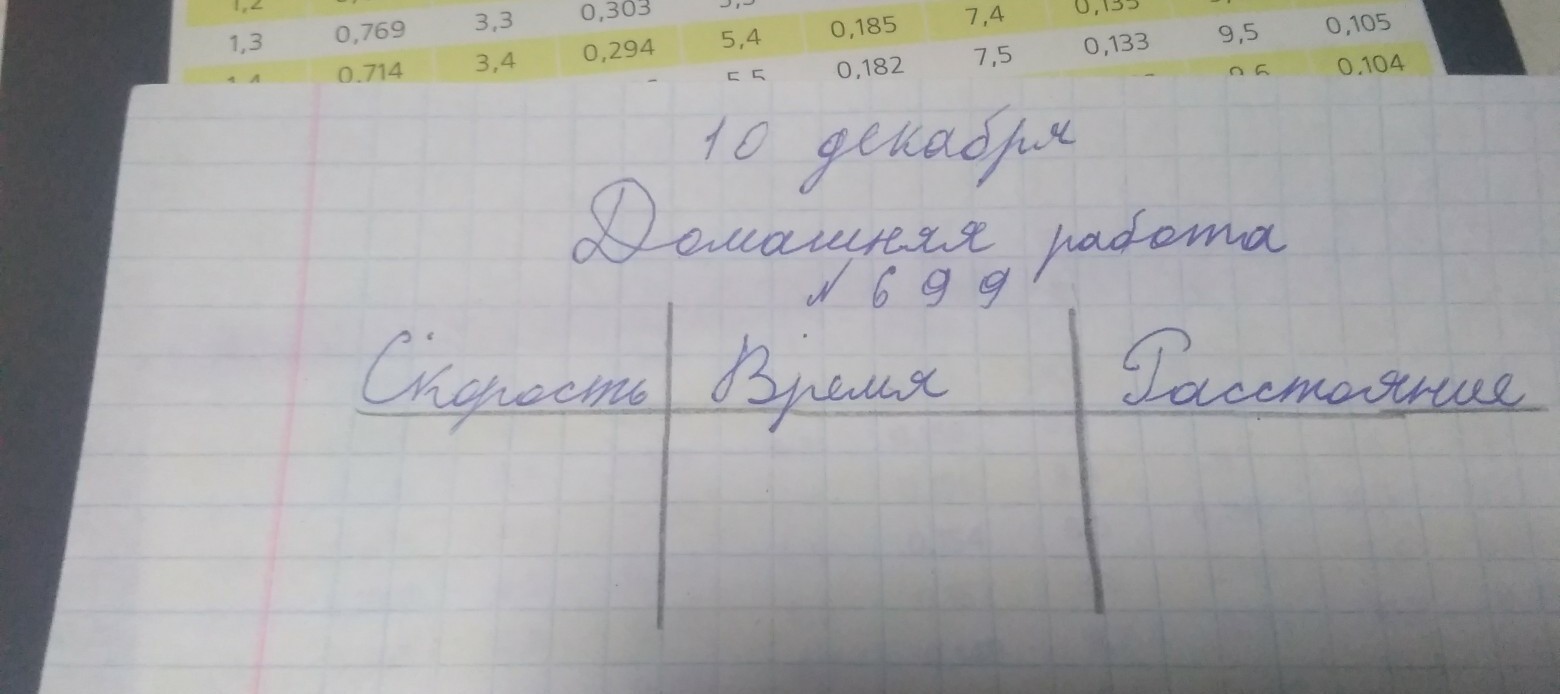 1,2
1,3 0,769 3,3 0,303 5,4 0,185 7,4 0,135 9,5 0,105
0,714 3,4 0,294 5,5 0,182 7,5 0,133 9,6 0,104
10 декабря
Домашняя работа
№ 699
Скорость Время Расстояние